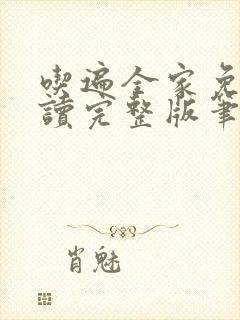 喫遍全家免
讀完整版筆
肖魅